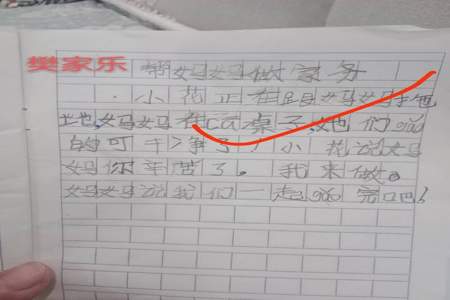 樊家乐 帮妈妈做家务
小花正在跟妈妈扫地
地,妈妈在cā桌子,她们
的可干净了,小花说妈
妈你辛苦了。我来做。
妈妈说我们一起 完吧!